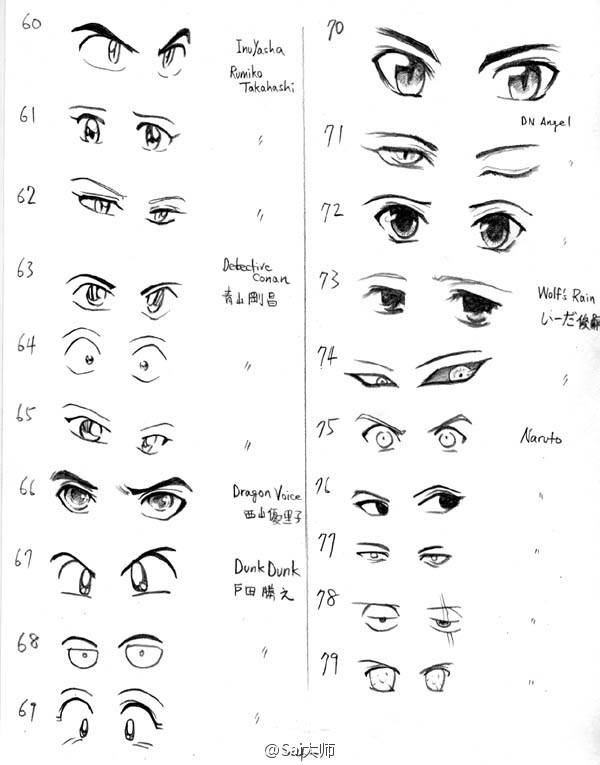 60
InuYasha
Rumiko
Takahashi
61
〃
62
〃
63
Detective
Conan
青山剛昌
64
〃
65
〃
66
Dragon Voice
西山優里子
67
Dunk Dunk
戸田勝之
68
〃
69
〃
70
DN Angel
71
〃
72
〃
73
Wolf's Rain
いーだ俊嗣
74
〃
75
Naruto
76
〃
77
〃
78
〃
79
〃
@Sai大师